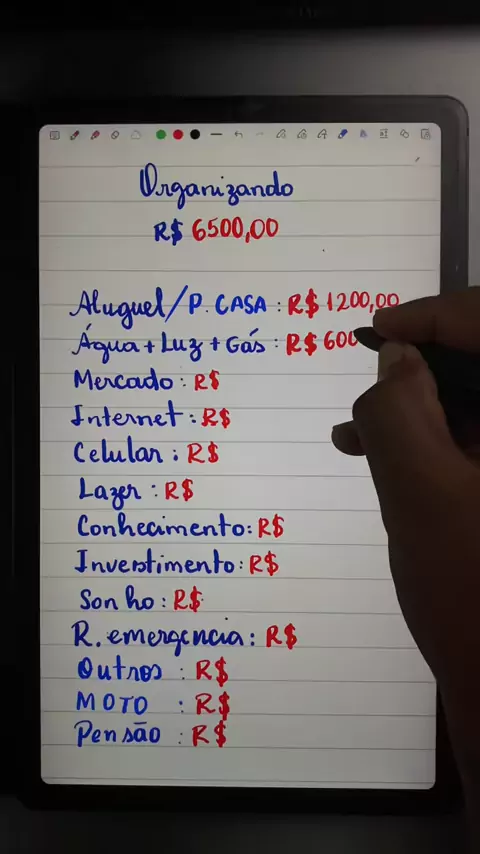 Organizando
R$ 6500,00
Aluguel/P. CASA : R$ 1200,00
Água + Luz + Gás : R$ 600
Mercado : R$
Internet : R$
Celular : R$
Lazer : R$
Conhecimento: R$
Investimento: R$
Sonho : R$
R. emergencia : R$
Outros : R$
MOTO : R$
Pensão : R$